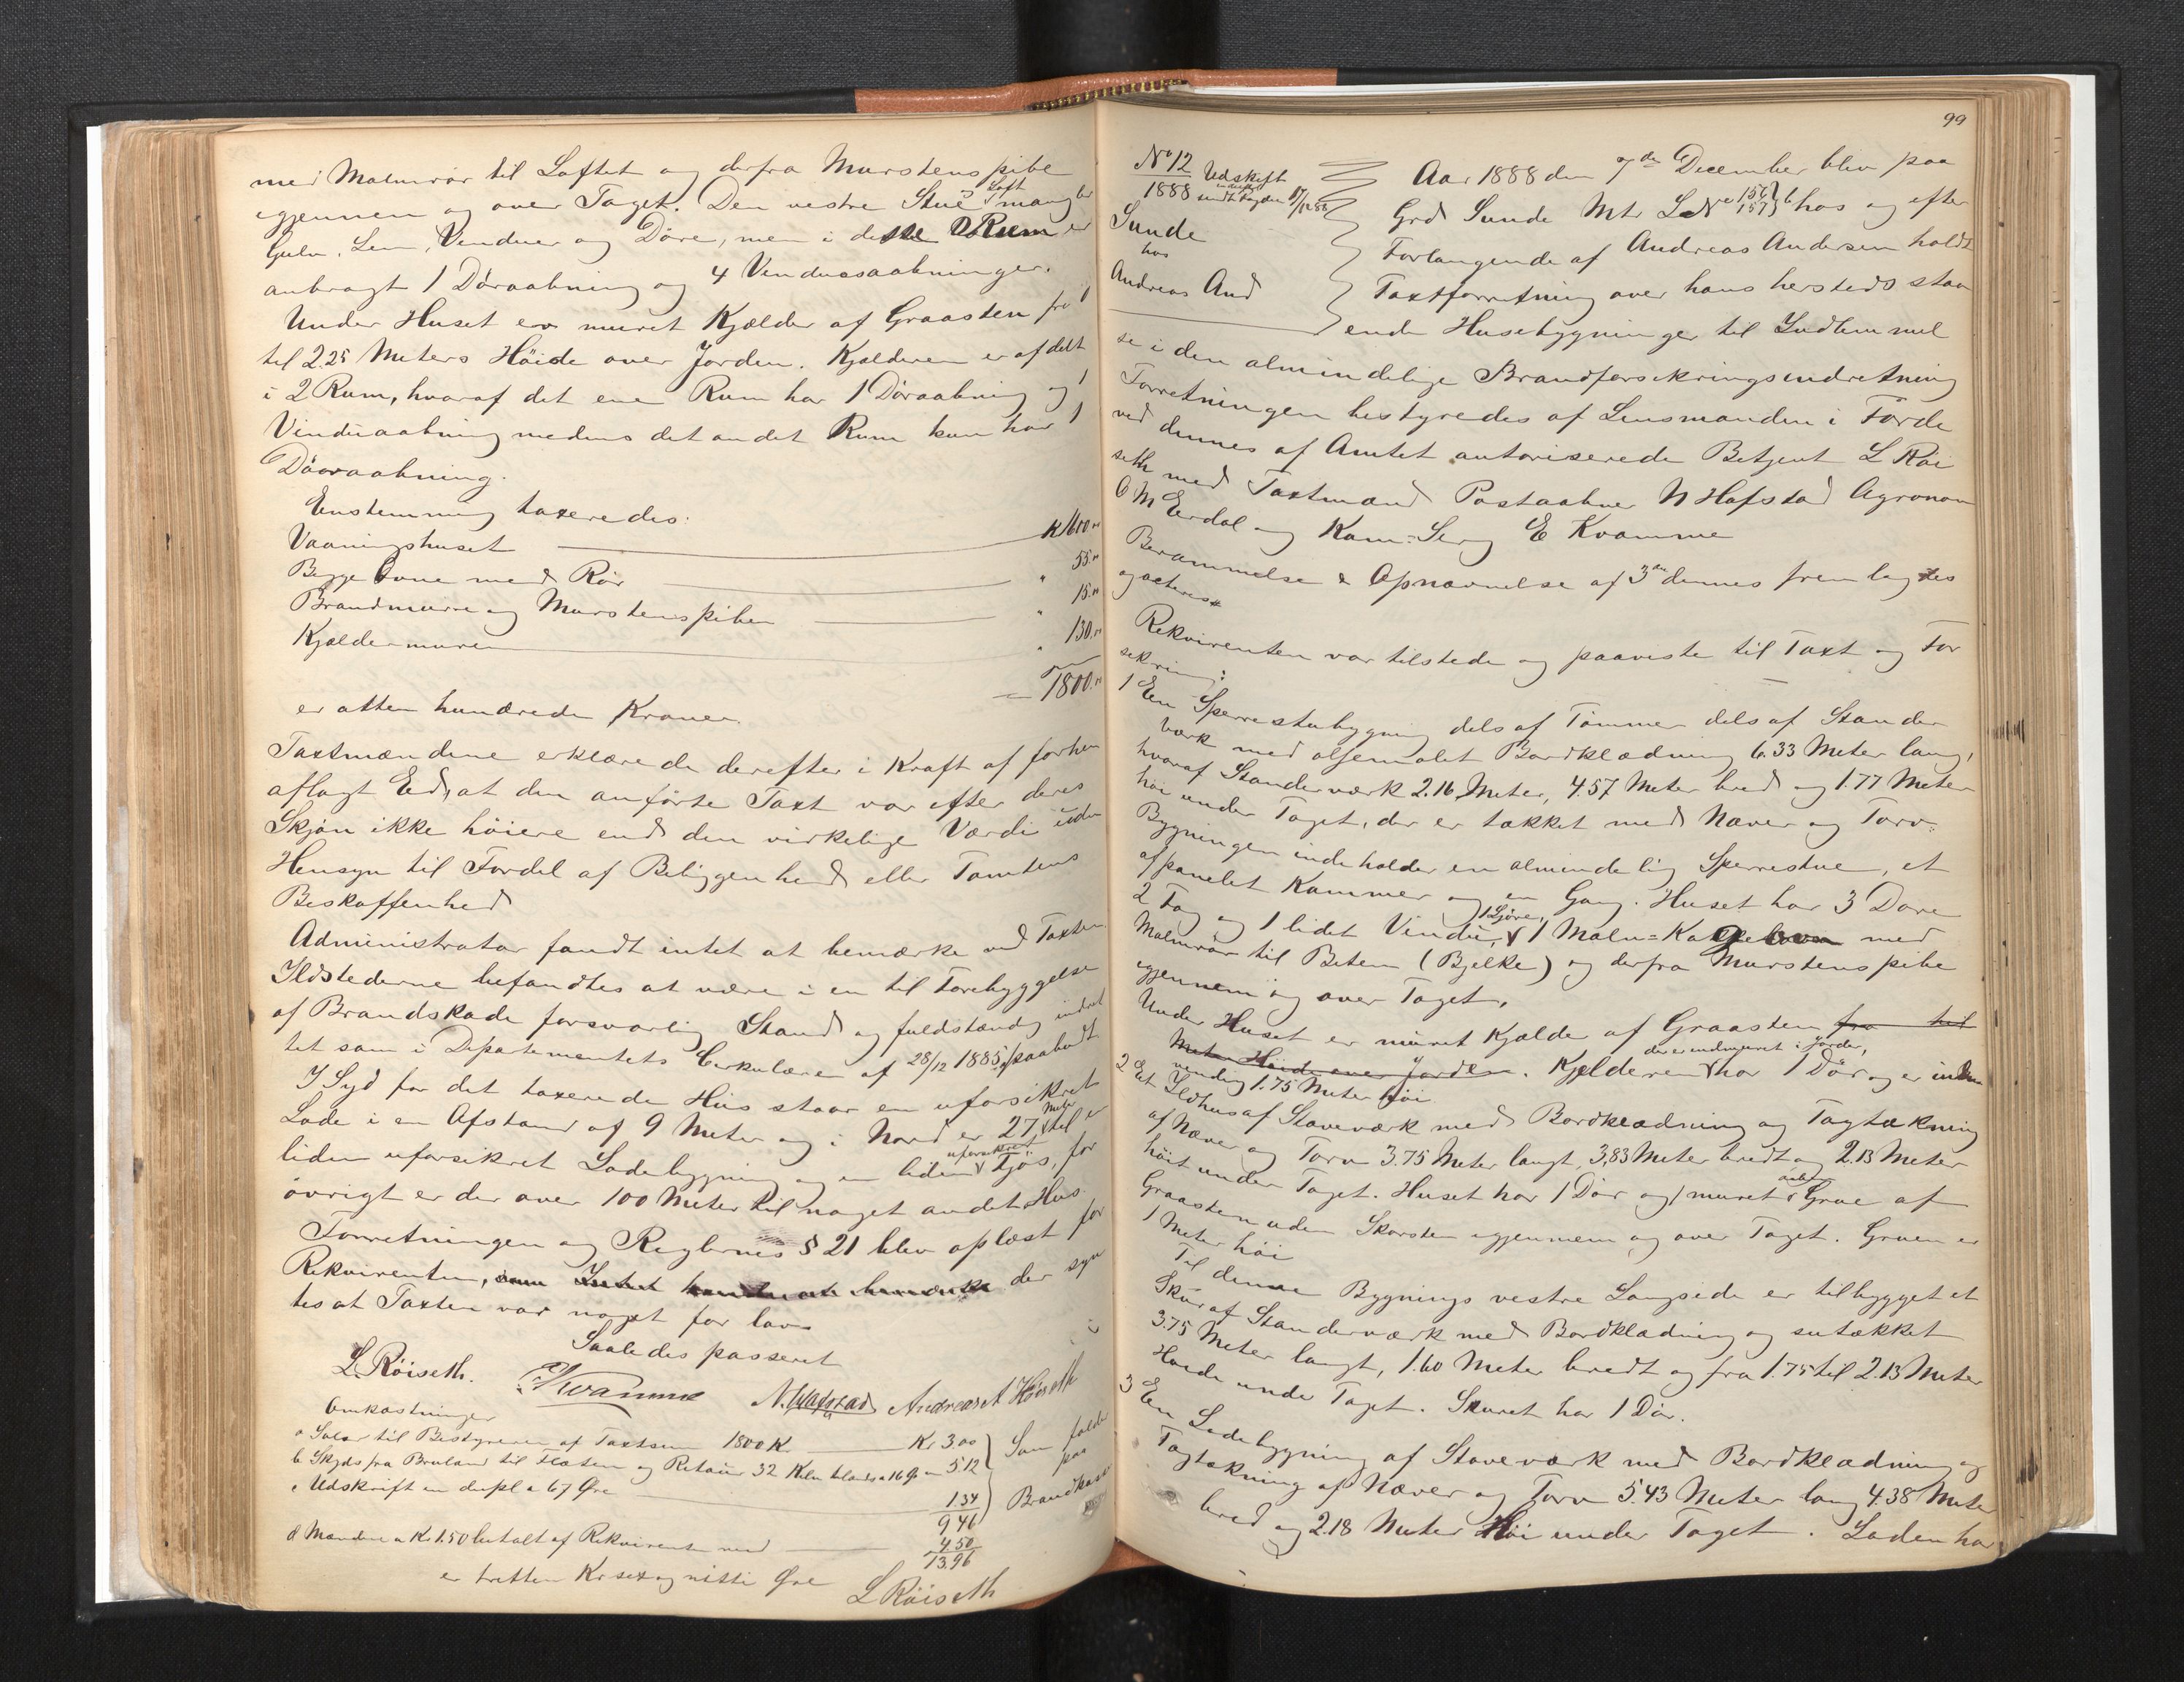 med Malmrör til Loftet og derfra Murstenspibe
igjennem og over Taget. Den vestre Stue Loft mangler
Gulv, Lem, Vinduer og Döre, men i dette Rum er
anbragt 1 Döraabning og 4 Vinduesaabninger.
Under Huset er muret Kjelder af Graasten fra 1
til 2.25 Meters Höide over Jorden. Kjelderen er afdelt
i 2 Rum, hvoraf det ene Rum har 1 Döraabning og 1
Vinduaabning medens det andet Rum kun har 1
Döraabning.
Enstemmig taxeredes:
Vaaningshuset K 1600.00
Begge Ovne med Rör " 55.00
Brandmure og Murstenspiben " 15.00
Kjeldermuren " 130.00
= 1800.00
er atten hundrede Kroner.
Taxtmændene erklærede derefter i Kraft af forhen
aflagt Ed, at den anförte Taxt var efter deres
Skjön ikke höiere end den virkelige Værdi uden
Hensyn til Fordel af Beliggenhed eller Tomtens
Beskaffenhed
Administrator fandt intet at bemærke ved Taxten.
Ildstederne befandtes at være i en til Forebyggelse
af Brandskade forsvarlig Stand og fuldstændig indret
tet som i Departementets Cirkulære af 28/12 1885 paabudt
I Syd for det taxerede Hus staar en uforsikret
Lade i en Afstand af 9 Meter og i Nord er 27 Meter til en
liden uforsikret Ladebygning og en liden uforsikret Fjös, for
övrigt er der over 100 Meter til noget andet Hus.
Forretningen og Reglernes § 21 blev oplæst for
Rekvirenten, der syn
tes at Taxten var noget for lav
Saaledes passeret
L. Röiseth. E Kvamme N. Hafstad Andreas A Höiseth
Omkostninger
a Salær til Bestyreren af Taxtsum 1800 K. Kr 3.00 Som falder
b Skyds fra Bruland til og Retour 32 Klm a 16 Ø " 5.12 paa
c Udskrift in dupl a 67 Øre 1.34 Brandkassen
9.46
d Mændene a Kr 1.50 betalt af Rekvirenten med 4.50
13.96
er tretten Kr sex og nitti Øre L Röiseth
99
No 12 Udskift
1888 indført sendt Fogden 17/12 88
Sunde
hos
Andreas And
Aar 1888 den 7de December blev paa
Grd Sunde Mtr L No 156 157 b hos og efter
Forlangende af Andreas Andersen holdt
Taxtforretning over hans hersteds staa
ende Husebygninger til Indlemmel
se i den almindelige Brandforsikringsindretning
Forretningen bestyredes af Lensmanden i Förde
ved dennes af Amtet autoriserede Betjent L Röi
seth med Taxtmænd Postaabner N Hafstad Agronom
O M Eerdal og Kom=Serg E Kvamme
Berammelse & Opnævnelse af 3die dennes fremlagdes
og acteres
Rekvirenten var tilstede og paaviste til Taxt og For
sikring:
1 En Sperrestubygning dels af Tömmer dels af Stander
værk med oljemalet Bordklædning 6.33 Meter lang,
hvoraf Standerværk 2.16 Meter, 4.57 Meter bred og 1.77 Meter
höi under Taget, der er tækket med Næver og Torv.
Bygningen indeholder en almindelig Sperrestue, et
afpanelet Kammer og en Gang. Huset har 3 Döre
2 Fag og 1 lidet Vindu, 1 Ljöre, 1 Malm=Kakkelovn med
Malmrör til Beten (Bjelke) og derfra Murstenspibe
igjennem og over Taget.
Under Huset er muret Kjelder af Graasten fra til
Meter Höide over Jorden. Kjelderen der er indmuret i Jorden, har 1 Dör og er inden
vendig 1.75 Meter höi
2 Et Ildhus af Stavværk med Bordklædning og Tagtækning
af Næver og Torv 3.75 Meter langt, 3.83 Meter bredt og 2.13 Meter
höit under Taget. Huset har 1 Dör og 1 muret aaben Grue af
Graasten uden Skorsten igjennem og over Taget. Gruen er
1 Meter höi
Til denne Bygnings vestre Langside er tilbygget et
Skur af Standerværk med Bordklædning og sutækket
3.75 Meter langt, 1.60 Meter bredt og fra 1.75 til 2.13 Meter
Høide under Taget. Skuret har 1 Dör.
3 En Ladebygning af Stavværk med Bordklædning og
Tagtækning af Næver og Torv 5.43 Meter lang 4.38 Meter
bred og 2.18 Meter Höi under Taget. Laden har